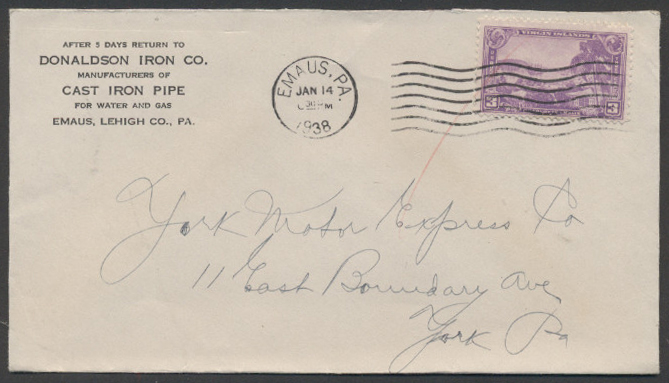 AFTER 5 DAYS RETURN TO
DONALDSON IRON CO.
MANUFACTURERS OF
CAST IRON PIPE
FOR WATER AND GAS
EMAUS, LEHIGH CO., PA.
EMAUS, PA.
JAN 14
30 PM
1938
VIRGIN ISLANDS
3 3
York Motor Express Co
11 East Boundary Ave
York Pa